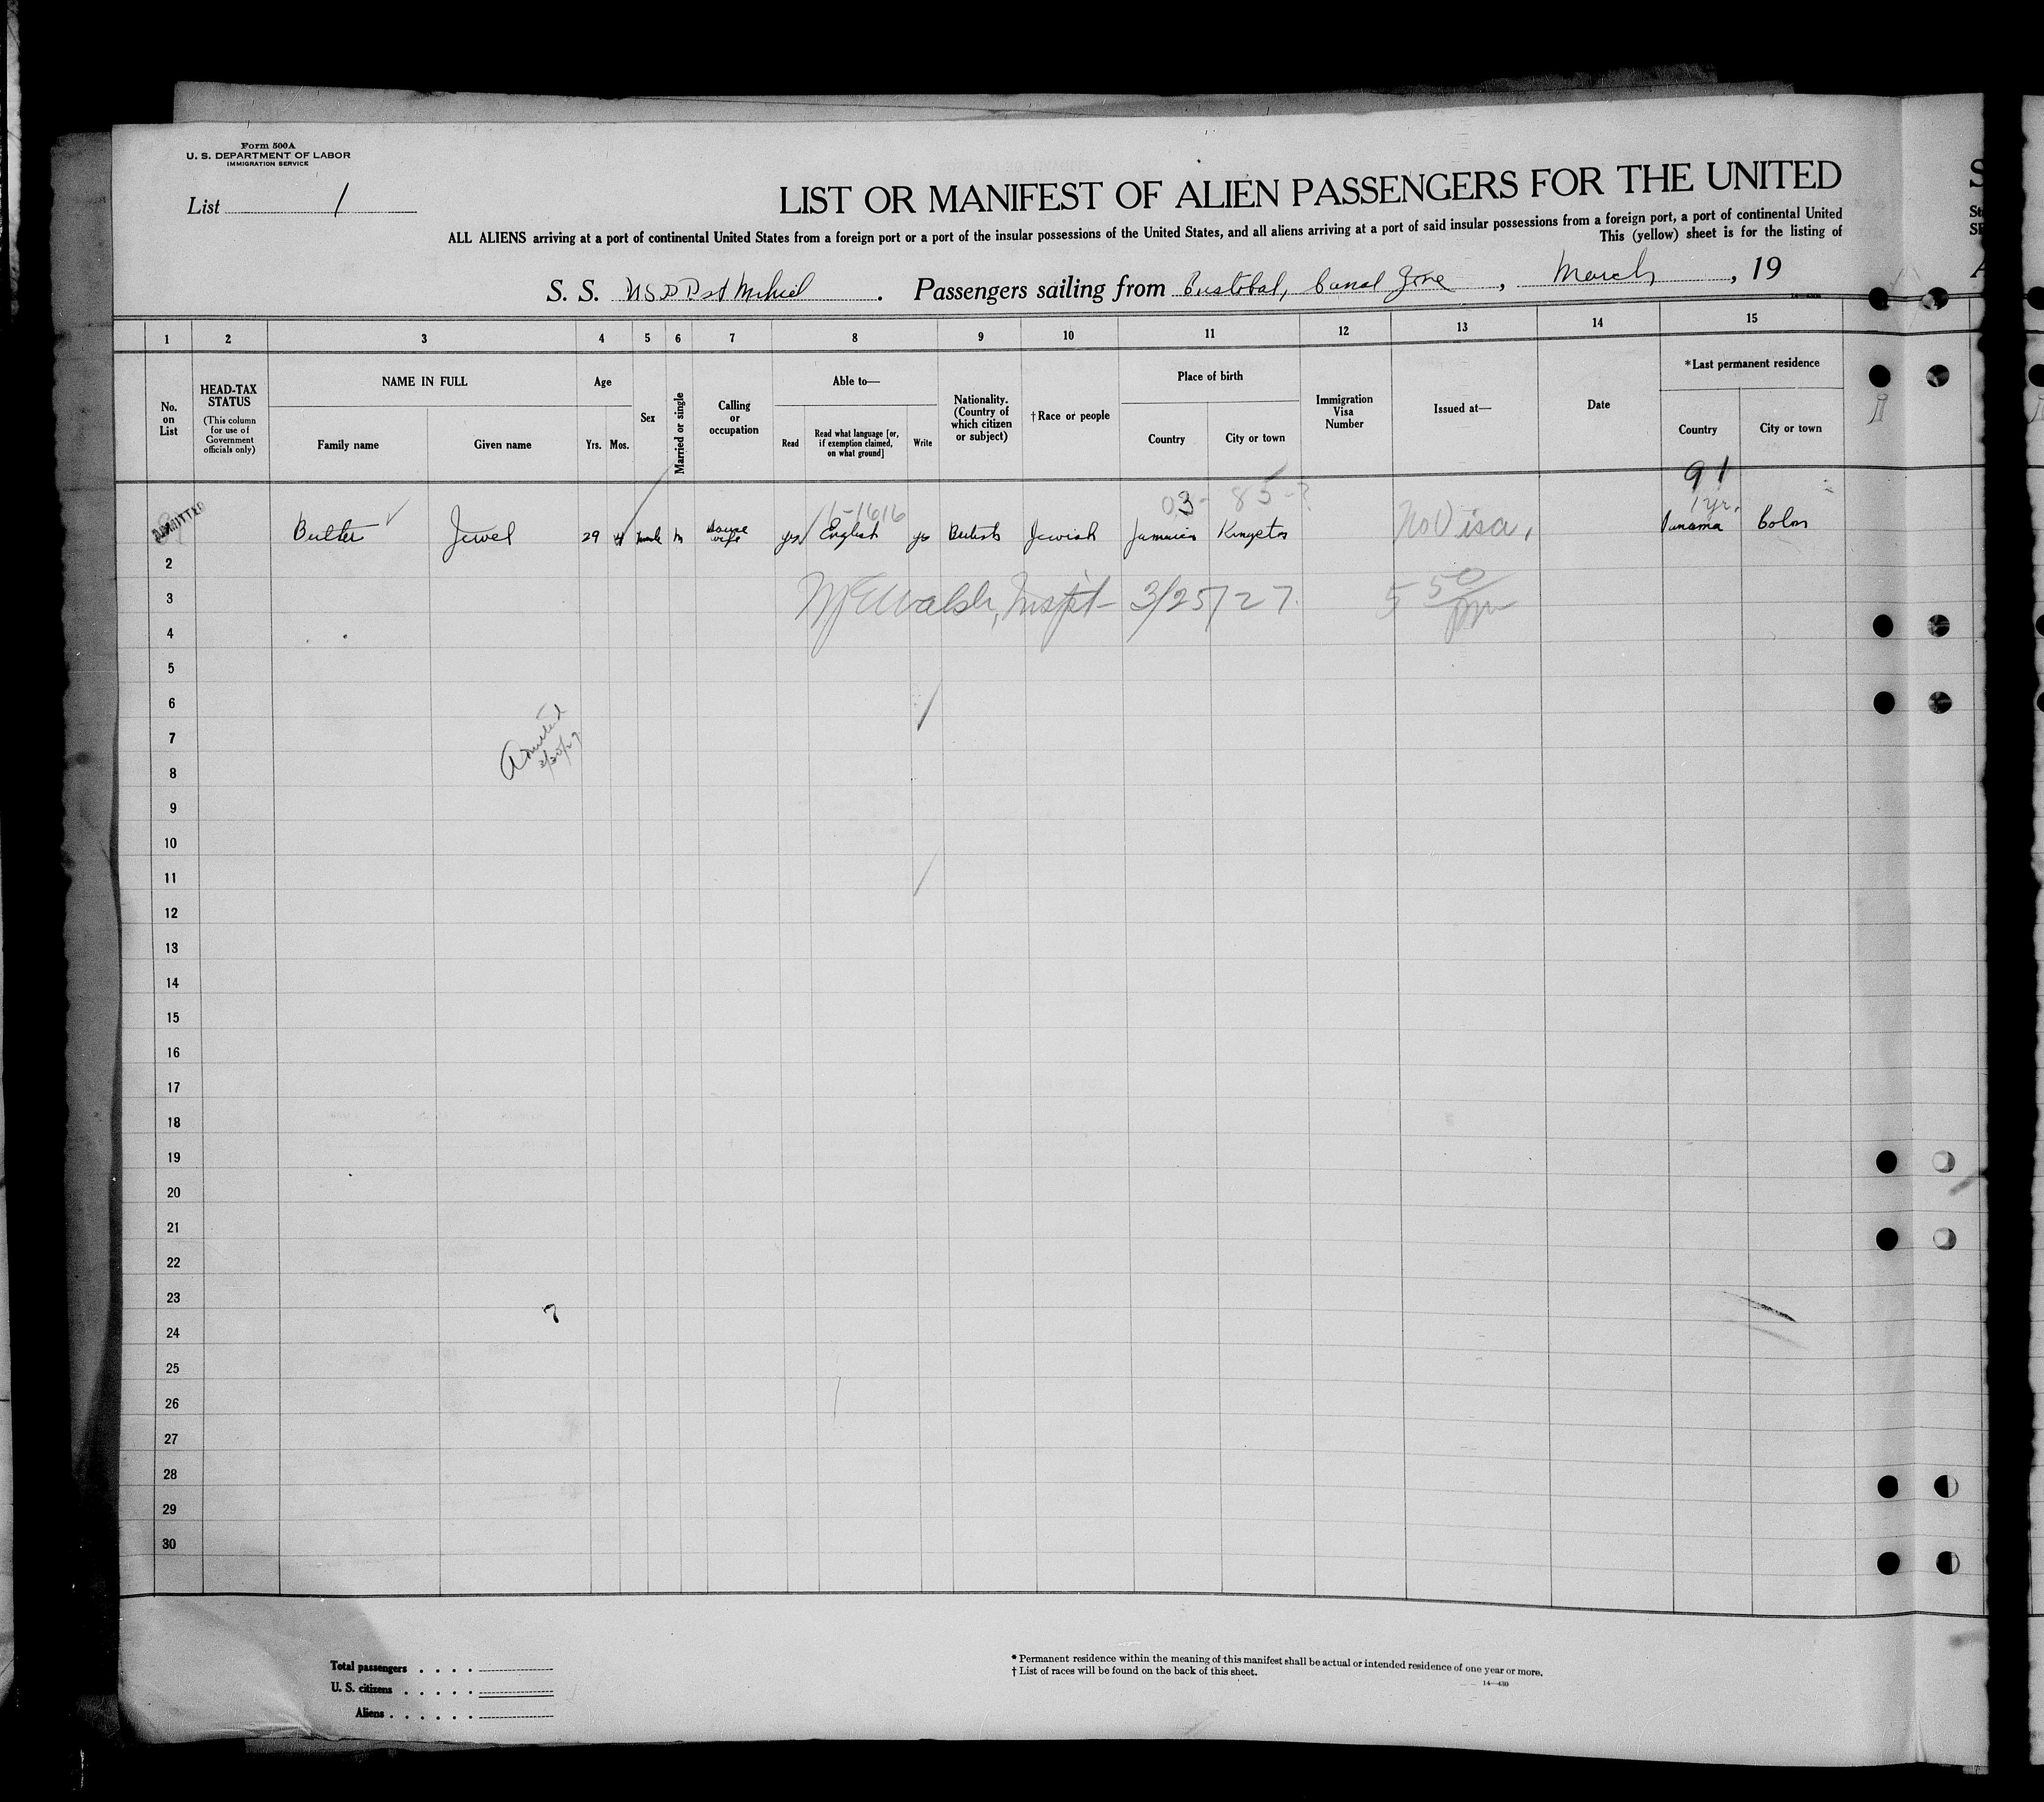 Form 500A
U. S. DEPARTMENT OF LABOR
IMMIGRATION SERVICE
List 1
LIST OR MANIFEST OF ALIEN PASSENGERS FOR THE UNITED
ALL ALIENS arriving at a port of continental United States from a foreign port or a port of the insular possessions of the United States, and all aliens arriving at a port of said insular possessions from a foreign port, a port of continental United
This (yellow) sheet is for the listing of
S. S. U.S.A.T. St Mihiel . Passengers sailing from Cristobal, Canal Zone , March , 19
1 2 3 4 5 6 7 8 9 10 11 12 13 14 15
No. on List
HEAD-TAX STATUS (This column for use of Government officials only)
NAME IN FULL
Family name Given name
Age
Yrs. Mos.
Sex
Married or single
Calling or occupation
Able to—
Read Read what language [or, if exemption claimed, on what ground] Write
Nationality. (Country of which citizen or subject)
†Race or people
Place of birth
Country City or town
Immigration Visa Number
Issued at—
Date
*Last permanent residence
Country City or town
91
03- 85-?
1yr.
ADMITTED Butler Jewel 29 M House wife yes English yes British Jewish Jamaica Kingston No Visa, Panama Colon
2
3 Walsh, Inspt- 3/25/27. 5 50 pm
4
5
6
7
Admitted
8
9
10
11
12
13
14
15
16
17
18
19
20
21
22
23
7
24
25
26
27
28
29
30
Total passengers . . . .
U. S. citizens . . . . .
Aliens . . . . . .
* Permanent residence within the meaning of this manifest shall be actual or intended residence of one year or more.
† List of races will be found on the back of this sheet.
14—430